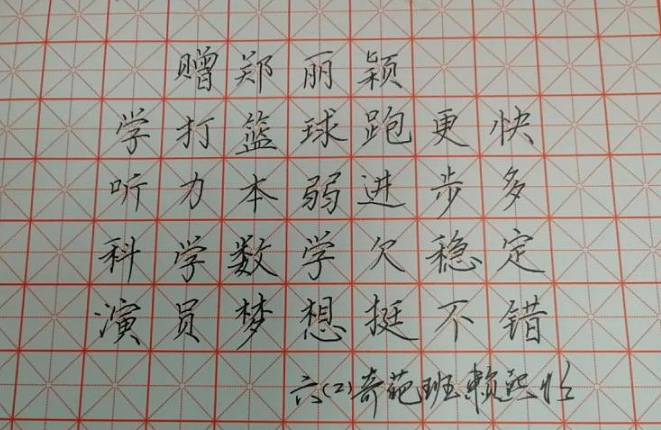 赠郑丽颖
学打篮球跑更快
听力本弱进步多
科学数学欠稳定
演员梦想挺不错
六(2)奇葩班赖熙怡